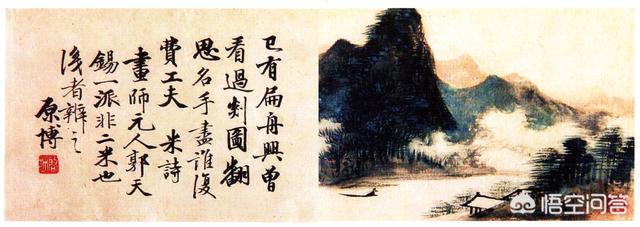 已有扁舟興曾
看過剡圖翻
思名手盡誰復
費工夫 米詩
畫師元人郭天
錫一派非二米也
者辨之
原博
悟空问答